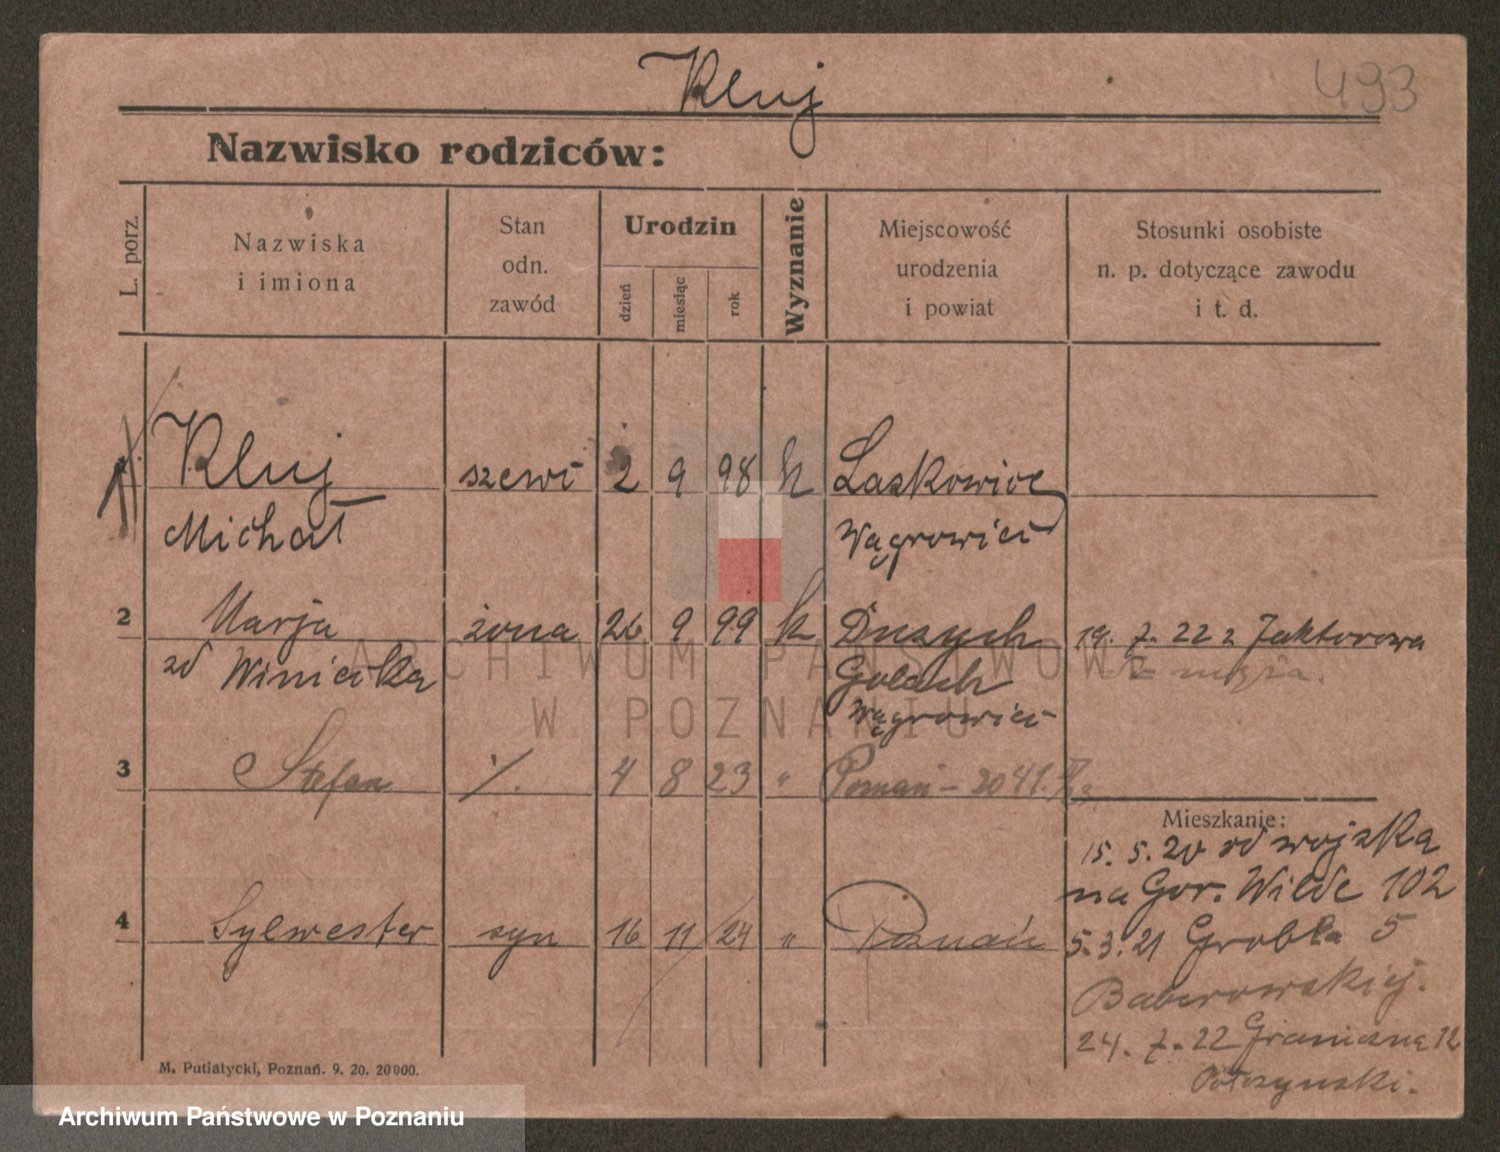 Kluj
493
Nazwisko rodziców:
L. porz.
Nazwiska
i imiona
Stan
odn.
zawód
Urodzin
dzień
miesiąc
rok
Wyznanie
Miejscowość
urodzenia
i powiat
Stosunki osobiste
n. p. dotyczące zawodu
i t. d.
Kluj szewc 2 9 98 k Laskowice
Michał Wągrowiec
2 Marja żona 26 9 99 k
zd Winiecka
Wągrowiec
19. 7. 22 z Jaktorowa
z męża.
3 Stefan /. 4 8 23 " Poznań - 2041.
4 Sylwester syn 16 11 24 " Poznań
Mieszkanie:
15. 5. 20 od wojska
na Gór. Wilde 102
5. 3. 21 Grobla 5
24. 7. 22 Graniczna 12
M. Putiatycki, Poznań. 9. 20. 20 000.
ARCHIWUM PAŃSTWOWE
W POZNANIU
Archiwum Państwowe w Poznaniu